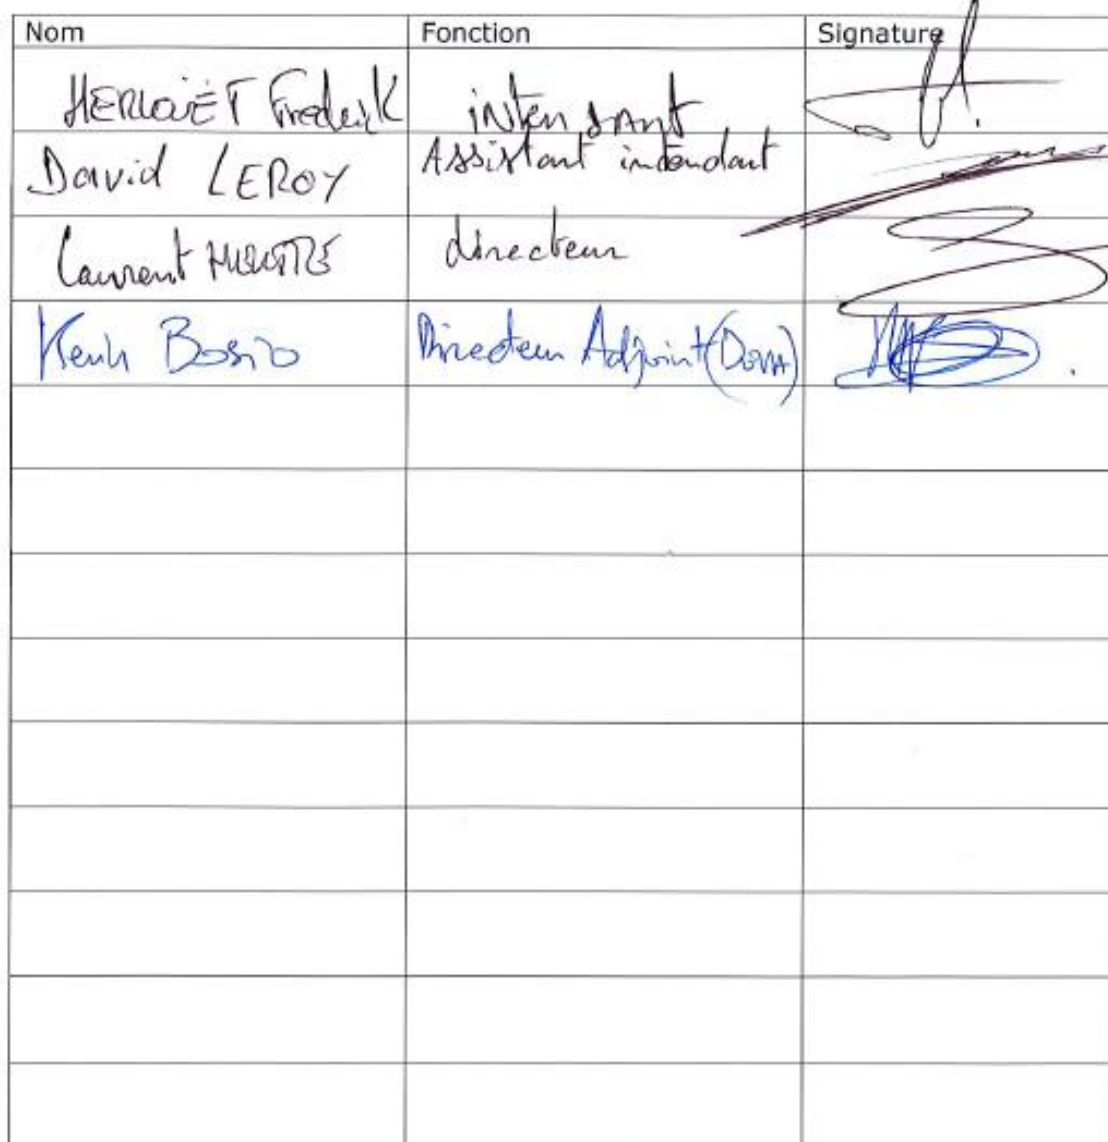 Nom Fonction Signature
Frederik intendant
David LEROY Assistant intendant
Laurent directeur
Bosio Directeur Adjoint